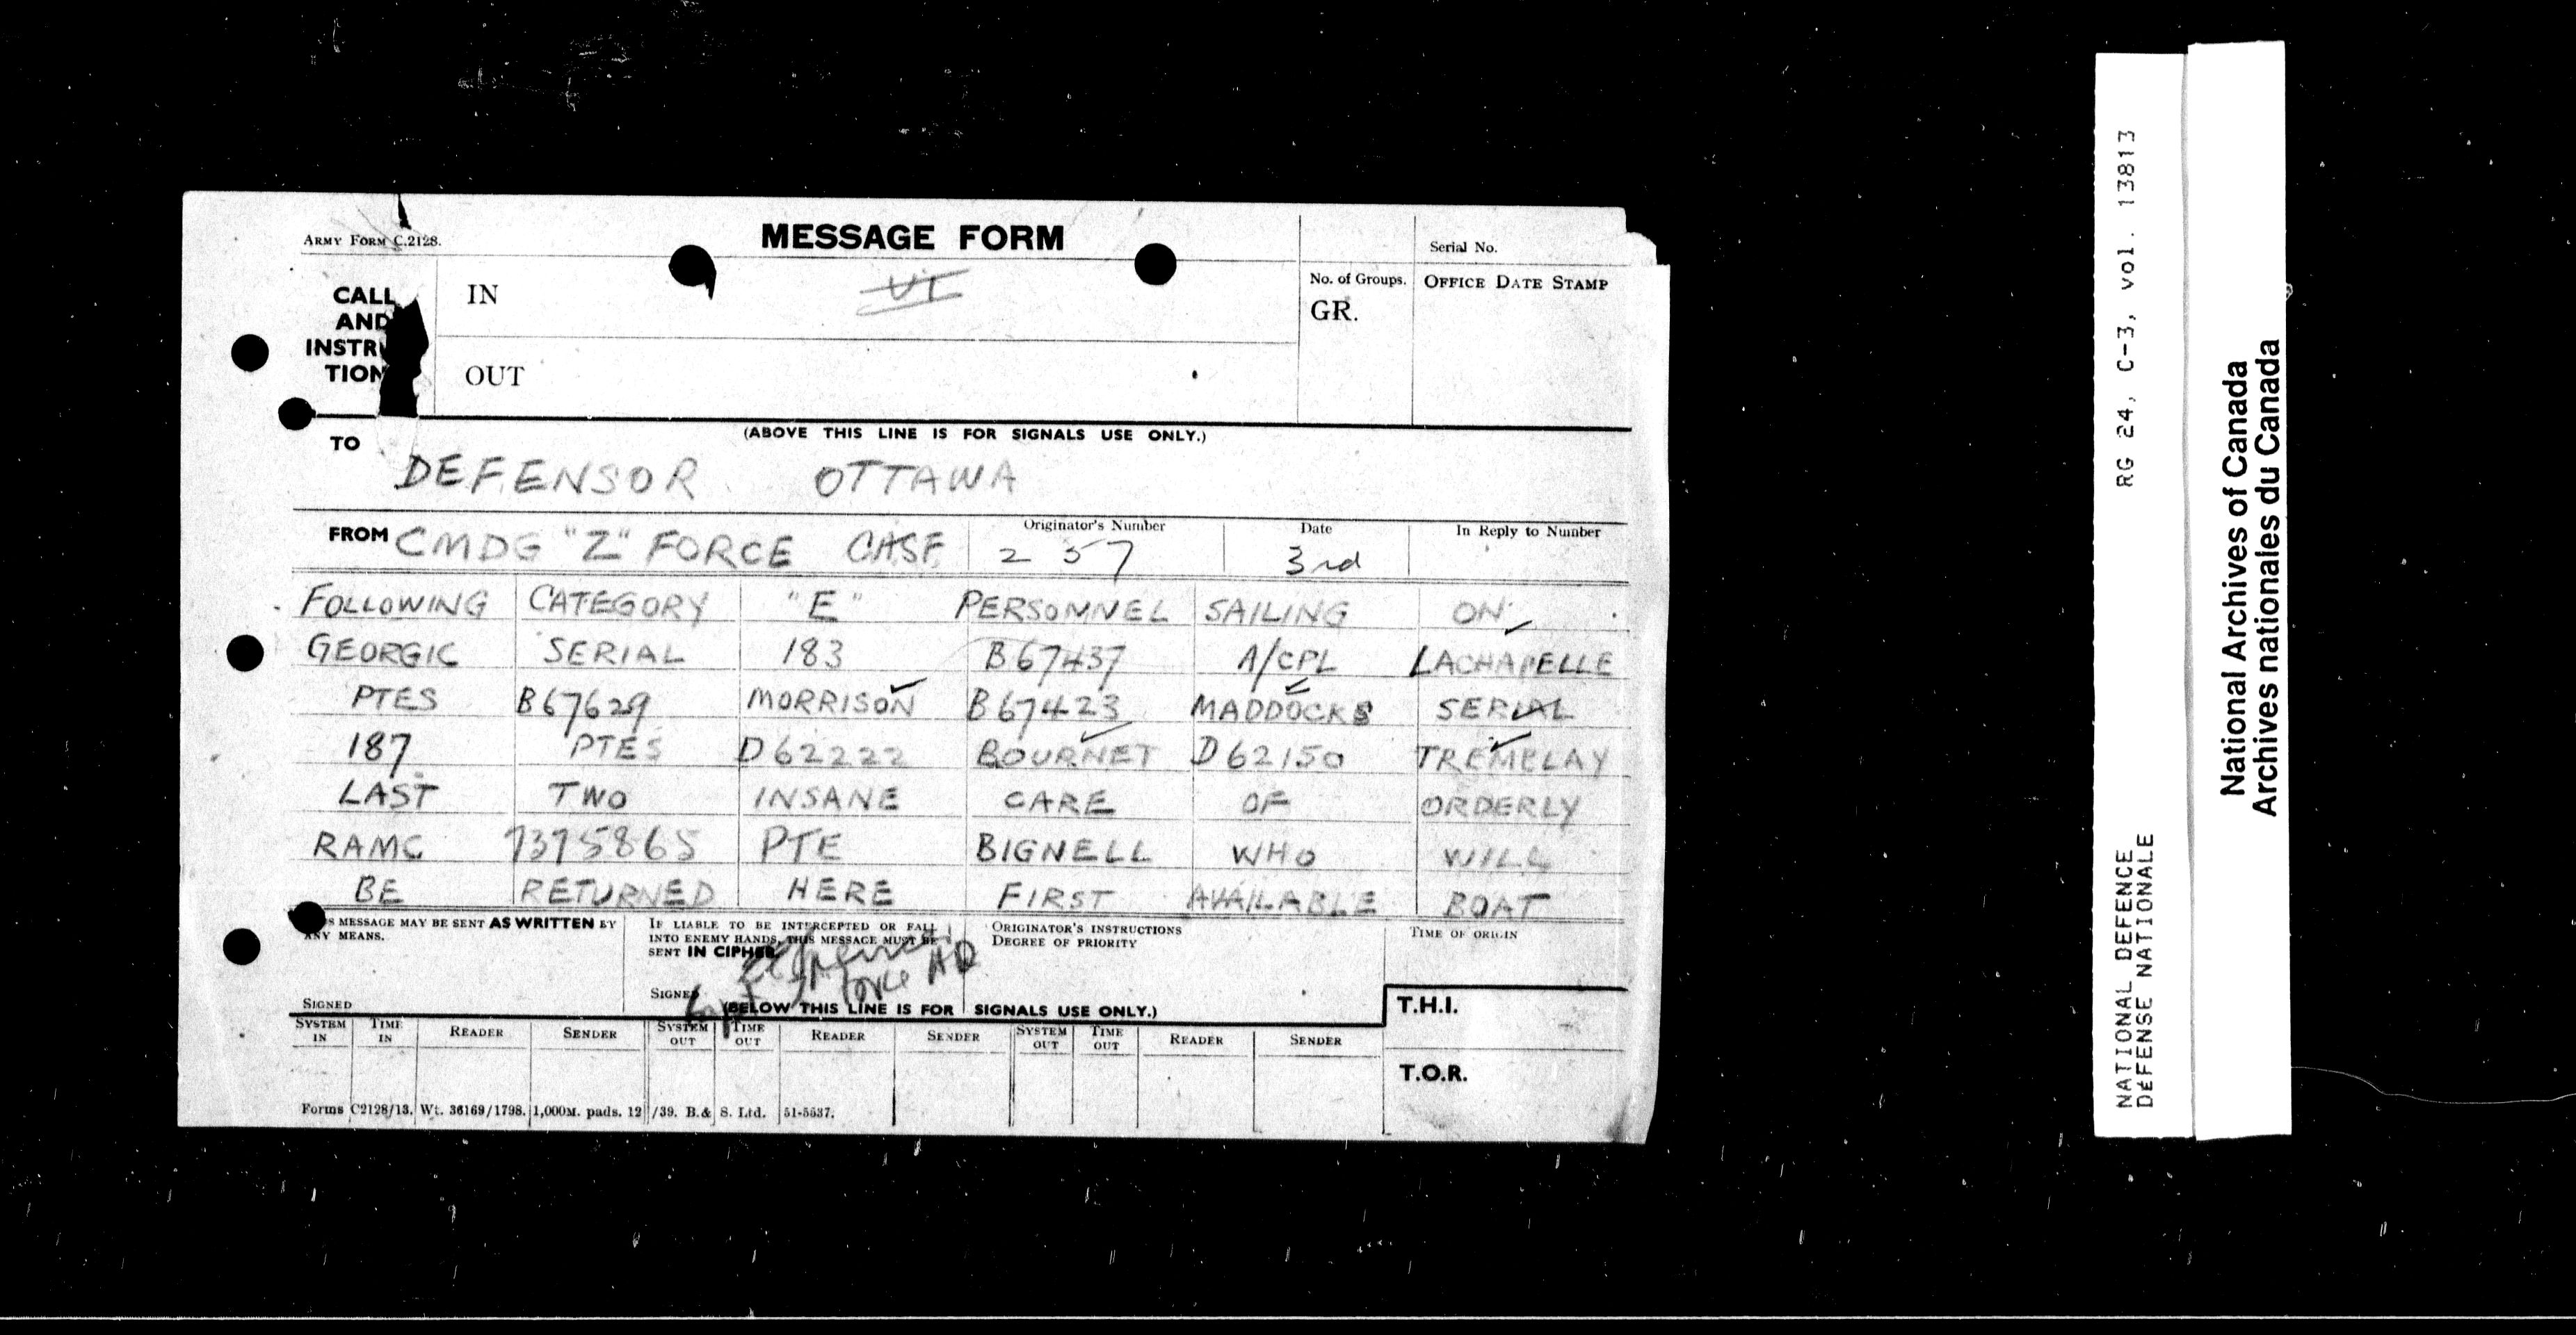 ARMY FORM C.2128.
MESSAGE FORM
Serial No.
CALL
AND
INSTRU
TION
IN
VI
OUT
No. of Groups.
GR.
OFFICE DATE STAMP
(ABOVE THIS LINE IS FOR SIGNALS USE ONLY.)
TO
DEFENSOR OTTAWA
FROM CMDG "Z" FORCE CASF
Originator's Number
257
Date
3rd
In Reply to Number
FOLLOWING CATEGORY "E" PERSONNEL SAILING ON
GEORGIC SERIAL 183 B67437 A/CPL LACHAPELLE
PTES B67629 MORRISON B67423 MADDOCKS SERIAL
187 PTES D62222 BOURNET D62150 TREMBLAY
LAST TWO INSANE CARE OF ORDERLY
RAMC 7375865 PTE BIGNELL WHO WILL
BE RETURNED HERE FIRST AVAILABLE BOAT
S MESSAGE MAY BE SENT AS WRITTEN BY
ANY MEANS.
SIGNED
IF LIABLE TO BE INTERCEPTED OR FALL
INTO ENEMY HANDS, THIS MESSAGE MUST BE
SENT IN CIPHER.
SIGNED
Force HQ
ORIGINATOR'S INSTRUCTIONS
DEGREE OF PRIORITY
TIME OF ORIGIN
(BELOW THIS LINE IS FOR SIGNALS USE ONLY.)
T.H.I.
SYSTEM IN TIME IN READER SENDER SYSTEM OUT TIME OUT READER SENDER SYSTEM OUT TIME OUT READER SENDER
T.O.R.
Forms C2128/13. Wt. 36169/1798. 1,000M. pads. 12/39. B.& S. Ltd. 51-5537.
RG 24, C-3, vol. 13813
NATIONAL DEFENCE
DÉFENSE NATIONALE
National Archives of Canada
Archives nationales du Canada